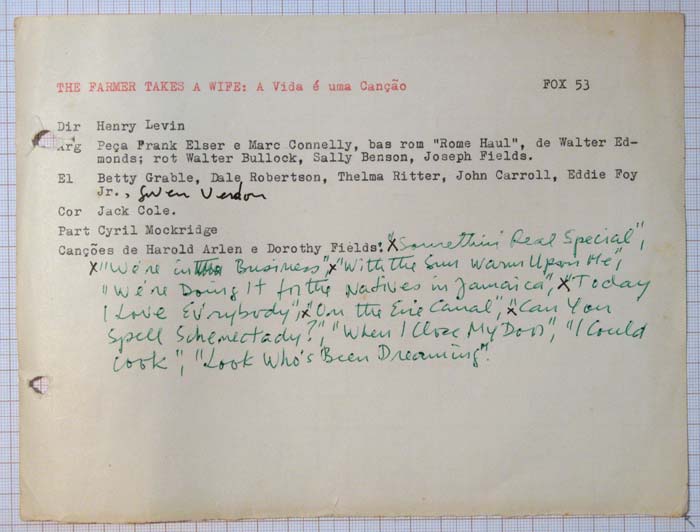 THE FARMER TAKES A WIFE: A Vida é uma Canção FOX 53
Dir Henry Levin
Arg Peça Frank Elser e Marc Connelly, bas rom "Rome Haul", de Walter Ed-
monds; rot Walter Bullock, Sally Benson, Joseph Fields.
El Betty Grable, Dale Robertson, Thelma Ritter, John Carroll, Eddie Foy
Jr., Gwen Verdon
Cor Jack Cole.
Part Cyril Mockridge
Canções de Harold Arlen e Dorothy Fields: x"Somethin' Real Special",
x"We're in Business", x"With the Sun Warm Upon Me",
"We're Doing It for the Natives in Jamaica", x"Today
I Love Ev'rybody", x"On the Erie Canal", x"Can You
Spell Schenectady?", "When I Close My Door", "I Could
Cook", "Look Who's Been Dreaming".